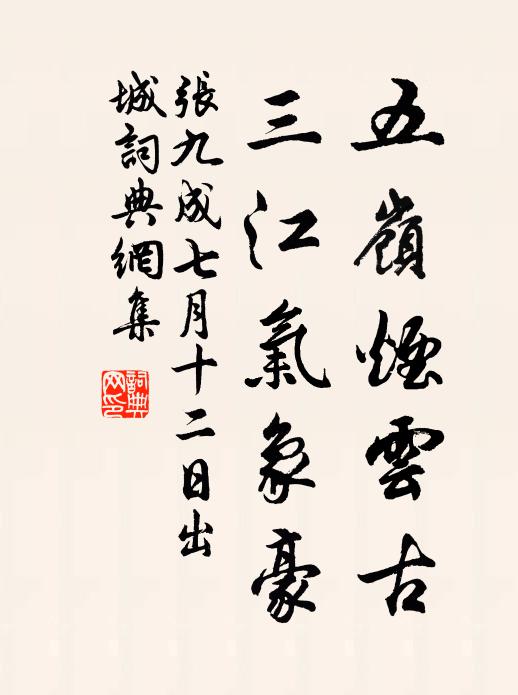 五嶺煙雲古
三江氣象豪
張九成七月十二日出
城詞典網集
詞典
网印